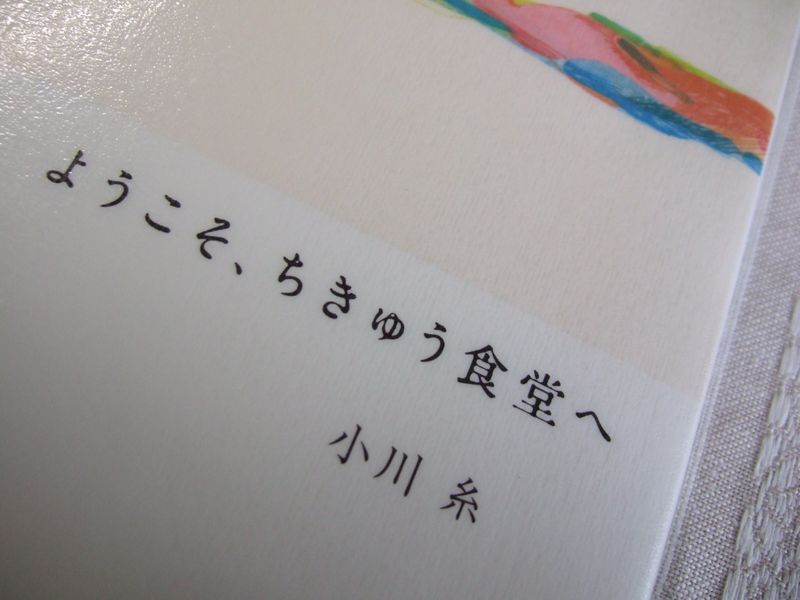 ようこそ、ちきゅう食堂へ
小川 糸